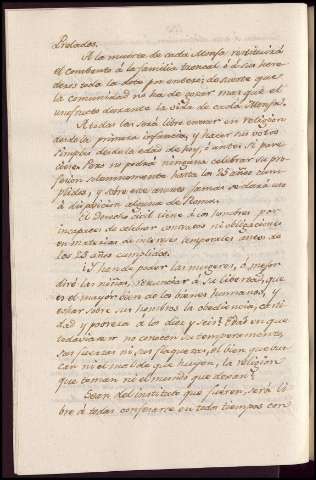 Prelados.
A la muerte de cada Monja, restituirá
el combento á la familia troncal ó á sus here-
deros toda la dote por entero; de suerte que
la comunidad no ha de gozar mas que el
usufructo durante la vida de cada Monja.
A todas las será libre entrar en religion
desde la primera infancia, y hacer sus votos
simples desde la edad de hoy, ó antes si pare-
ciere. Pero no podrá ninguna celebrar su pro-
fesion solemnemente hasta los 25 años cum-
plidos, y sobre este no jamas se dará uso
á disposicion alguna de Roma.
El Derecho civil tiene á los hombres por
incapaces de celebrar contratos ni obligaciones
en materias de intereses temporales antes de
los 25 años cumplidos.
¿Y han de poder las mugeres, ó mejor
diré las niñas, renunciar á su libertad, que
es el mayor bien de los bienes humanos, y
echar sobre sus hombros la obediencia, casti-
dad y pobreza á los diez y seis? Edad en que
todavia ni no conocen su temperamento,
sus fuerzas ni sus flaquezas, el bien que bus-
can ni el mal de que huyen, la religion
que toman ni el mundo que dexan?
Sean del instituto que fueren, será li-
bre á todas confesarse en todos tiempos con